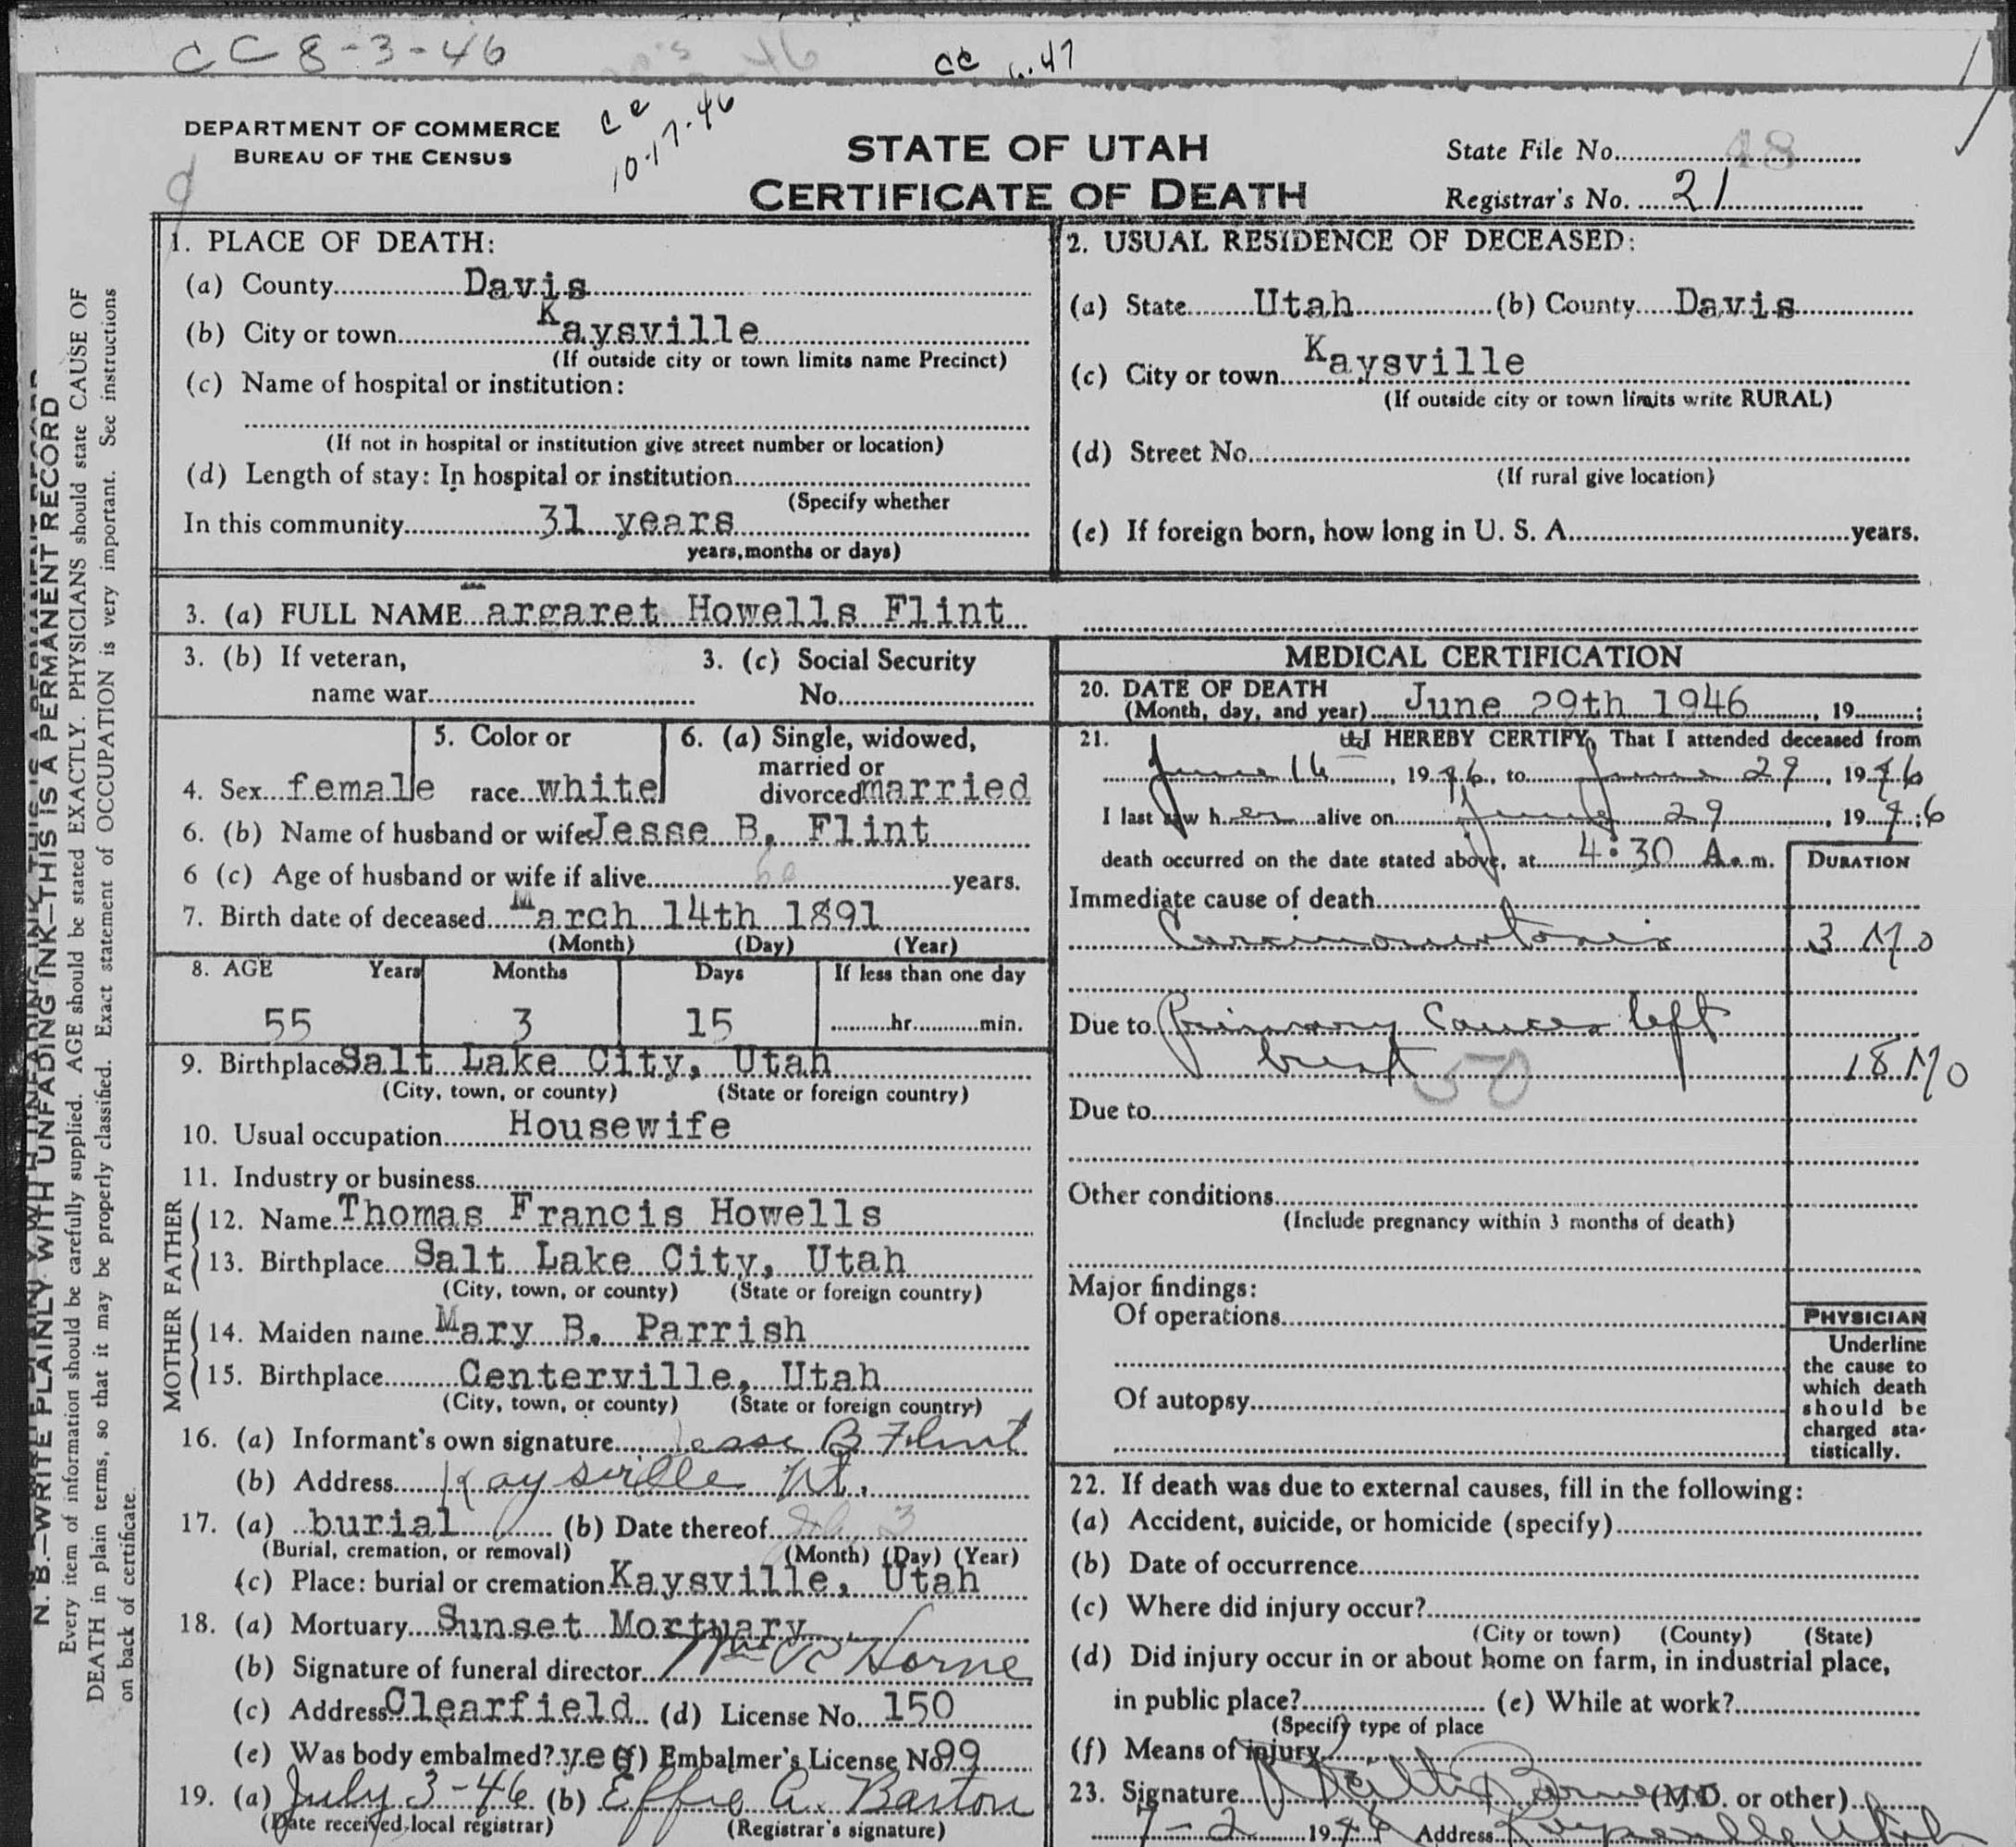 CC 8-3-46
CC 47
CC
10-17-46
DEPARTMENT OF COMMERCE
BUREAU OF THE CENSUS
STATE OF UTAH
CERTIFICATE OF DEATH
State File No. 48
Registrar's No. 21
N. B.—WRITE PLAINLY WITH UNFADING INK—THIS IS A PERMANENT RECORD
Every item of information should be carefully supplied. AGE should be stated EXACTLY. PHYSICIANS should state CAUSE OF
DEATH in plain terms, so that it may be properly classified. Exact statement of OCCUPATION is very important. See instructions
on back of certificate.
1. PLACE OF DEATH:
(a) County Davis
(b) City or town Kaysville
(If outside city or town limits name Precinct)
(c) Name of hospital or institution:
(If not in hospital or institution give street number or location)
(d) Length of stay: In hospital or institution
(Specify whether
In this community 31 years
years, months or days)
2. USUAL RESIDENCE OF DECEASED:
(a) State Utah (b) County Davis
(c) City or town Kaysville
(If outside city or town limits write RURAL)
(d) Street No.
(If rural give location)
(e) If foreign born, how long in U. S. A. years.
3. (a) FULL NAME argaret Howells Flint
3. (b) If veteran, 3. (c) Social Security
name war No.
5. Color or 6. (a) Single, widowed,
married or
4. Sex female race white divorced married
6. (b) Name of husband or wife Jesse B. Flint
6 (c) Age of husband or wife if alive years.
7. Birth date of deceased March 14th 1891
(Month) (Day) (Year)
8. AGE Years Months Days If less than one day
55 3 15 hr. min.
9. Birthplace Salt Lake City, Utah
(City, town, or county) (State or foreign country)
10. Usual occupation Housewife
11. Industry or business
FATHER
12. Name Thomas Francis Howells
13. Birthplace Salt Lake City, Utah
(City, town, or county) (State or foreign country)
MOTHER
14. Maiden name Mary B. Parrish
15. Birthplace Centerville, Utah
(City, town, or county) (State or foreign country)
16. (a) Informant's own signature Jesse B Flint
(b) Address Kaysville Ut.
17. (a) burial (b) Date thereof 3
(Burial, cremation, or removal) (Month) (Day) (Year)
(c) Place: burial or cremation Kaysville, Utah
18. (a) Mortuary Sunset Mortuary
(b) Signature of funeral director Horne
(c) Address Clearfield (d) License No. 150
(e) Was body embalmed? yes (f) Embalmer's License No. 99
19. (a) July 3-46 (b) Effie A. Barton
(Date received local registrar) (Registrar's signature)
MEDICAL CERTIFICATION
20. DATE OF DEATH
(Month, day, and year) June 29th 1946, 19 ;
21. I HEREBY CERTIFY, That I attended deceased from
June 16, 1946, to June 29, 1946
I last saw her alive on June 29, 1946
death occurred on the date stated above, at 4:30 A.m. DURATION
Immediate cause of death
3 Mo
Due to Primary Cancer left
brest 50 18 Mo
Due to
Other conditions
(Include pregnancy within 3 months of death)
Major findings:
Of operations
Of autopsy
PHYSICIAN
Underline
the cause to
which death
should be
charged sta-
tistically.
22. If death was due to external causes, fill in the following:
(a) Accident, suicide, or homicide (specify)
(b) Date of occurrence
(c) Where did injury occur?
(City or town) (County) (State)
(d) Did injury occur in or about home on farm, in industrial place,
in public place? (e) While at work?
(Specify type of place
(f) Means of injury
23. Signature (M.D. or other)
7-2 19 Address Kaysville Utah